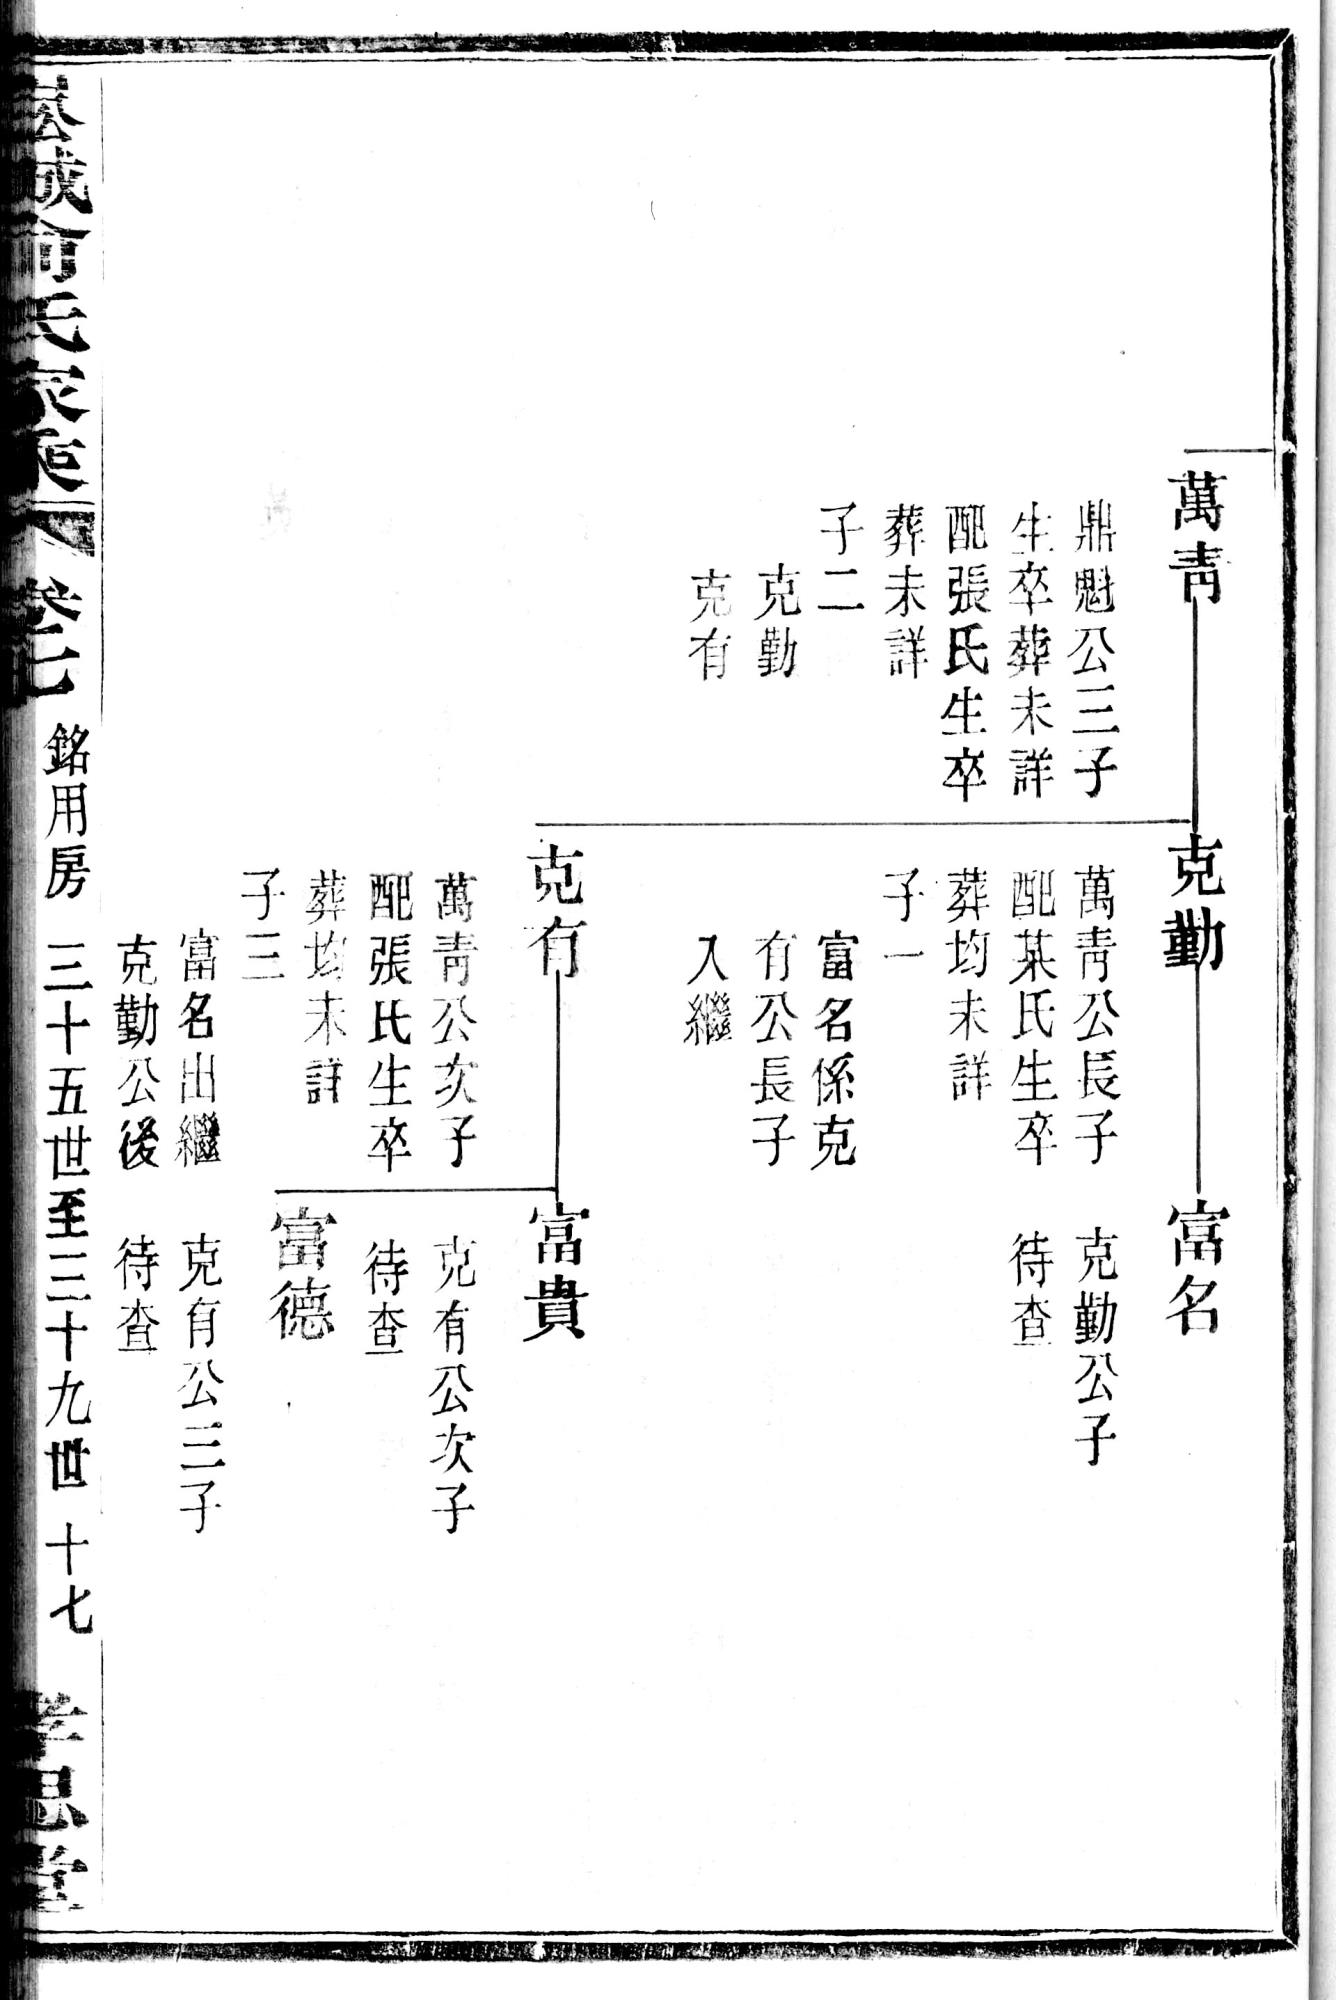 萬青
鼎魁公三子
生卒葬未詳
配張氏生卒
葬未詳
子二
克勤
克有
克勤
萬青公長子
配某氏生卒
葬均未詳
子一
富名係克
有公長子
入繼
富名
克勤公子
待查
克有
萬青公次子
配張氏生卒
葬均未詳
子三
富名出繼
克勤公後
富貴
克有公次子
待查
富德
克有公三子
待查
城俞氏家乘
卷七
銘用房
三十五世至三十九世
十七
孝思堂